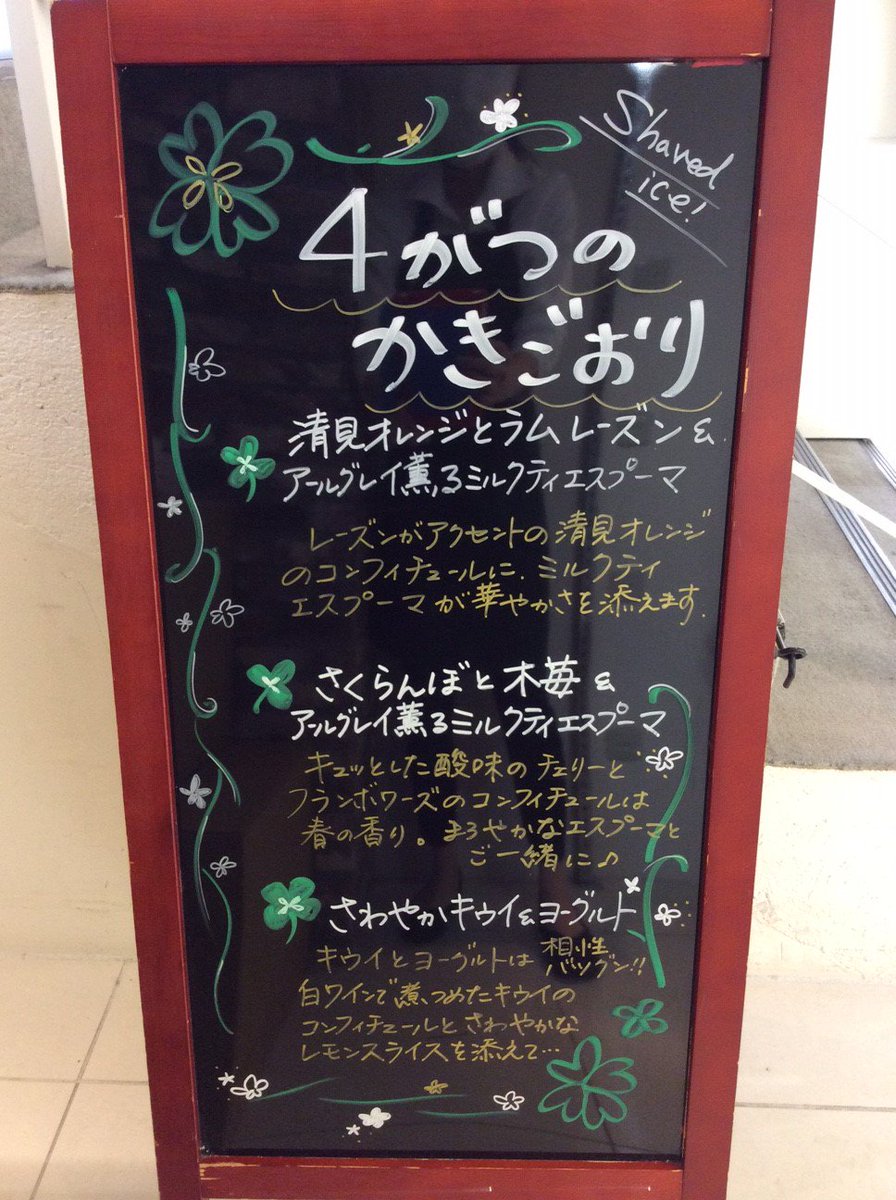 Shaved
ice!
4がつの
かきごおり
清見オレンジとラムレーズン&
アールグレイ薫るミルクティエスプーマ
レーズンがアクセントの清見オレンジ
のコンフィチュールに、ミルクティ
エスプーマが華やかさを添えます。
さくらんぼと木苺&
アールグレイ薫るミルクティエスプーマ
キュッとした酸味のチェリーと
フランボワーズのコンフィチュールは
春の香り。まろやかなエスプーマと
ご一緒に♪
さわやかキウイ&ヨーグルト
キウイとヨーグルトは相性バツグン!!
白ワインで煮つめたキウイの
コンフィチュールとさわやかな
レモンスライスを添えて…